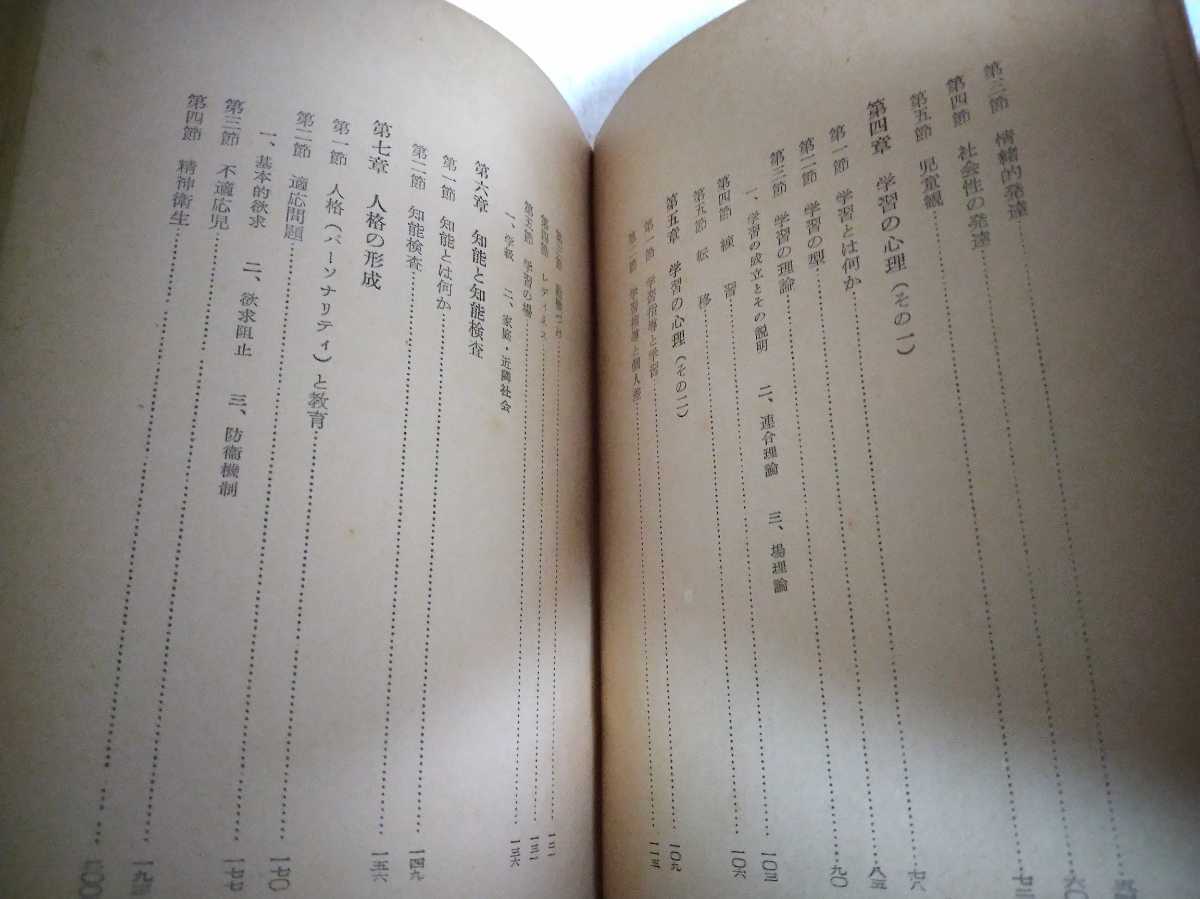 第三節 情緒的発達
第四節 社会性の発達……六〇
第五節 児童観……七二
第四章 学習の心理(その一)
第一節 学習とは何か……七八
第二節 学習の型……八三
第三節 学習の理論……九〇
一、学習の成立とその説明 二、連合理論 三、場理論
第四節 練習……一〇三
第五節 転移……一〇六
第五章 学習の心理(その二)
第一節 学習指導と学習……一〇九
第二節 学習指導と個人差……一一三
第三節
第四節 レディネス……一三一
第五節 学習の場……一三六
一、学級 二、家庭・近隣社会
第六章 知能と知能検査
第一節 知能とは何か……一四九
第二節 知能検査……一五六
第七章 人格の形成
第一節 人格(パーソナリティ)と教育……一七〇
第二節 適応問題……一七七
一、基本的欲求 二、欲求阻止 三、防衛機制
第三節 不適応児……一九三
第四節 精神衛生……二〇〇